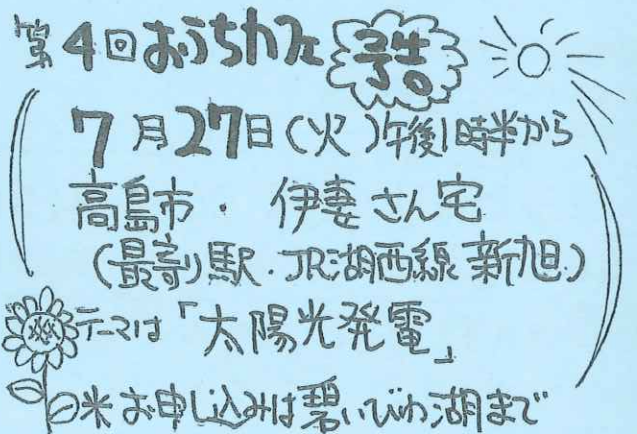 第4回おうちカフェ予告
7月27日(火)午後1時半から
高島市・伊妻さん宅
(最寄り駅・JR湖西線 新旭)
テーマは「太陽光発電」
※お申し込みは碧いびわ湖まで